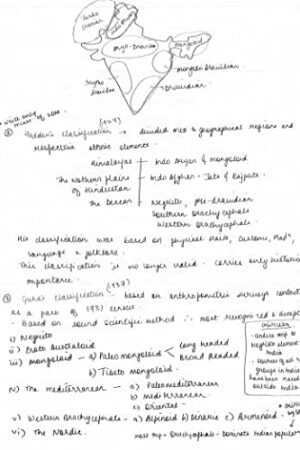 Turko Iranian
Indo Aryan
Aryo-Dravidian
Mongoloid
Mongolo Dravidian
Scytho dravidian
Dravidian
Haddon's classification (1924) → divided into 3 geographical regions and
respective ethnic elements.
Himalayas — Indo Aryan & mongoloid
The Northern plains of Hindustan — Indo Afghan - Jats & Rajputs
The Deccan — Negrito, Pre-dravidian
Southern Brachycephals
Western Brachycephals
His classification was based on physical traits, customs,
language & folklore.
This classification is no longer valid - carries only historical
importance.
Guha's Classification (1937) - based on anthropometric surveys conducted
as a part of 1931 census
- Based on sound scientific method - most recognized &
i) Negrito
ii) Proto Australoid
iii) mongoloid - a) Paleo mongoloid < Long headed
Broad headed
b) Tibeto mongoloid
iv) The mediterranean - a) Paleomediterranean
b) mediterranean
c) Oriental
v) Western Brachycephals - a) Alpinoid b) Dinaric c) Armenoid
vi) The Nordic.
most imp - Brachycephals - Dominate Indian population
criticism
negrito element in
India
groups in India
have been
outside India